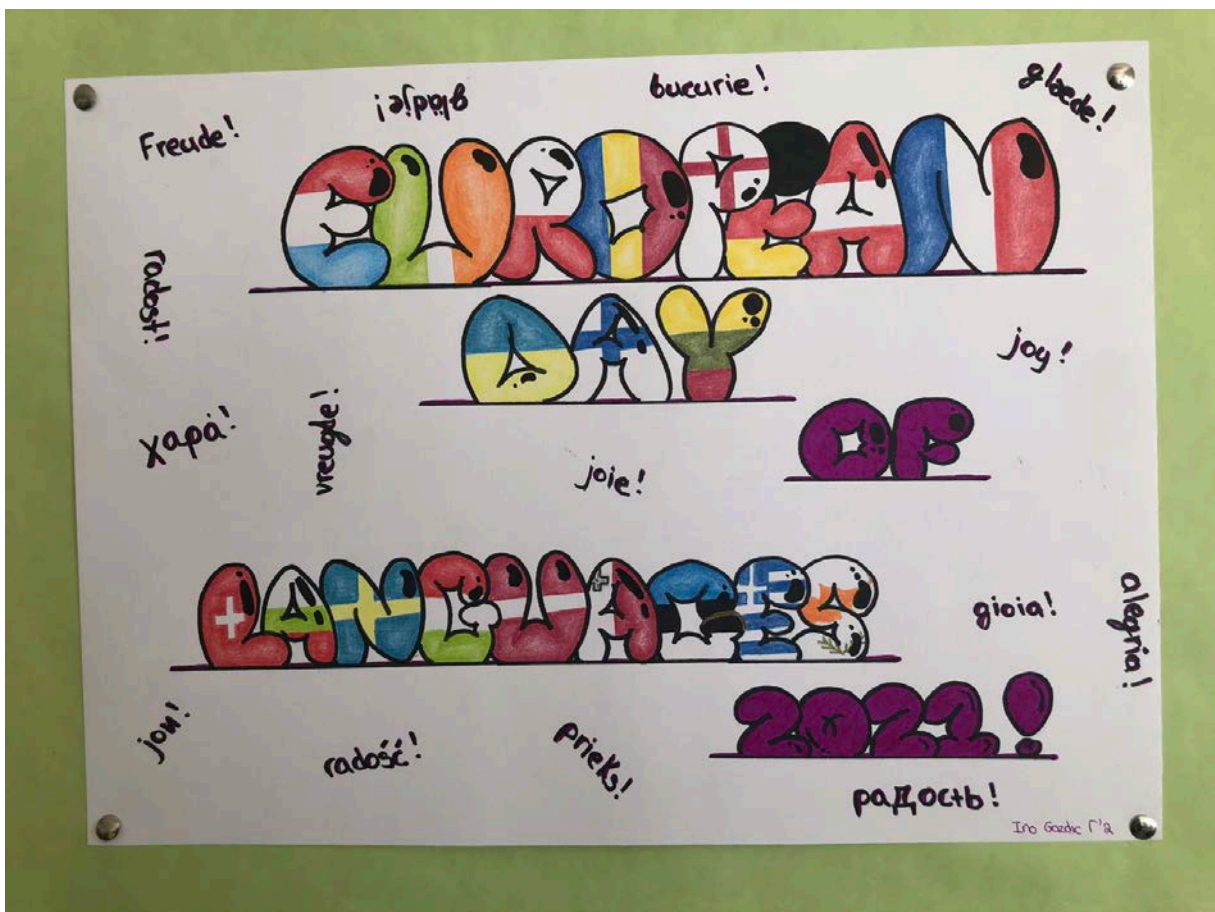 Freude!
glädje!
bucurie!
glæde!
EUROPEAN
radost!
DAY
joy!
OF
χαρά!
vreugde!
joie!
LANGUAGES
gioia!
alegria!
2021!
radość!
prieks!
радость!
Γ'2